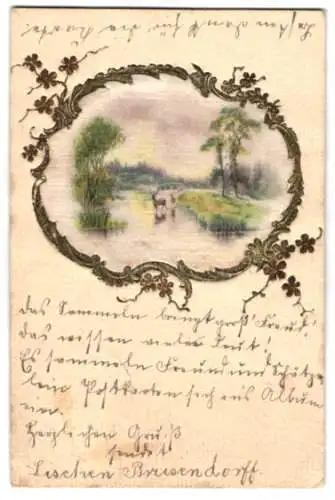 besten dank für die Karte.
das Sammeln bringt groß' Freud'!
das wissen viele Leut'!
Es sammeln Freund und Schätze
lein Postkarten sich ins Album
ein.
Herzlichen Gruß
sendet
Lieschen Briesendorff.